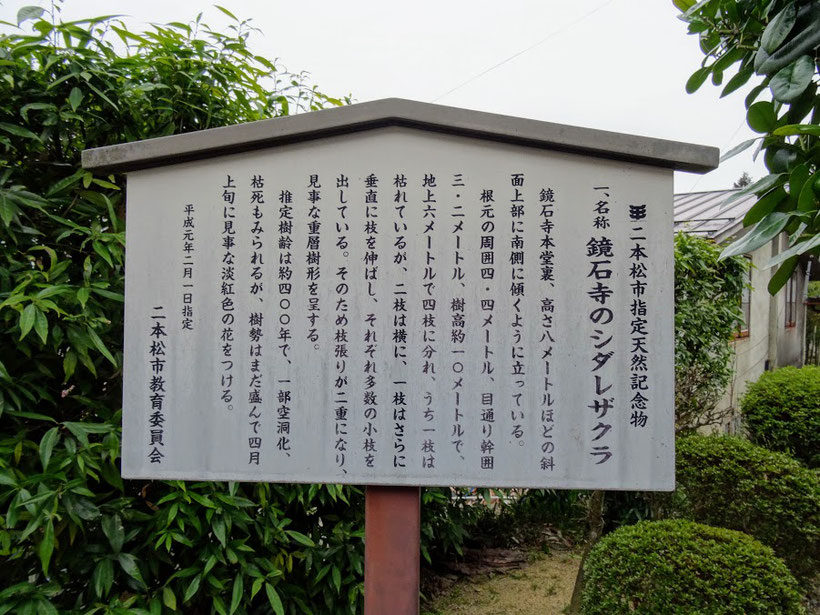 二本松市指定天然記念物
一、名称 鏡石寺のシダレザクラ
鏡石寺本堂裏、高さ八メートルほどの斜
面上部に南側に傾くように立っている。
根元の周囲四・四メートル、目通り幹囲
三・二メートル、樹高約一〇メートルで、
地上六メートルで四枝に分れ、うち一枝は
枯れているが、二枝は横に、一枝はさらに
垂直に枝を伸ばし、それぞれ多数の小枝を
出している。そのため枝張りが二重になり、
見事な重層樹形を呈する。
推定樹齢は約四〇〇年で、一部空洞化、
枯死もみられるが、樹勢はまだ盛んで四月
上旬に見事な淡紅色の花をつける。
平成元年二月一日指定
二本松市教育委員会